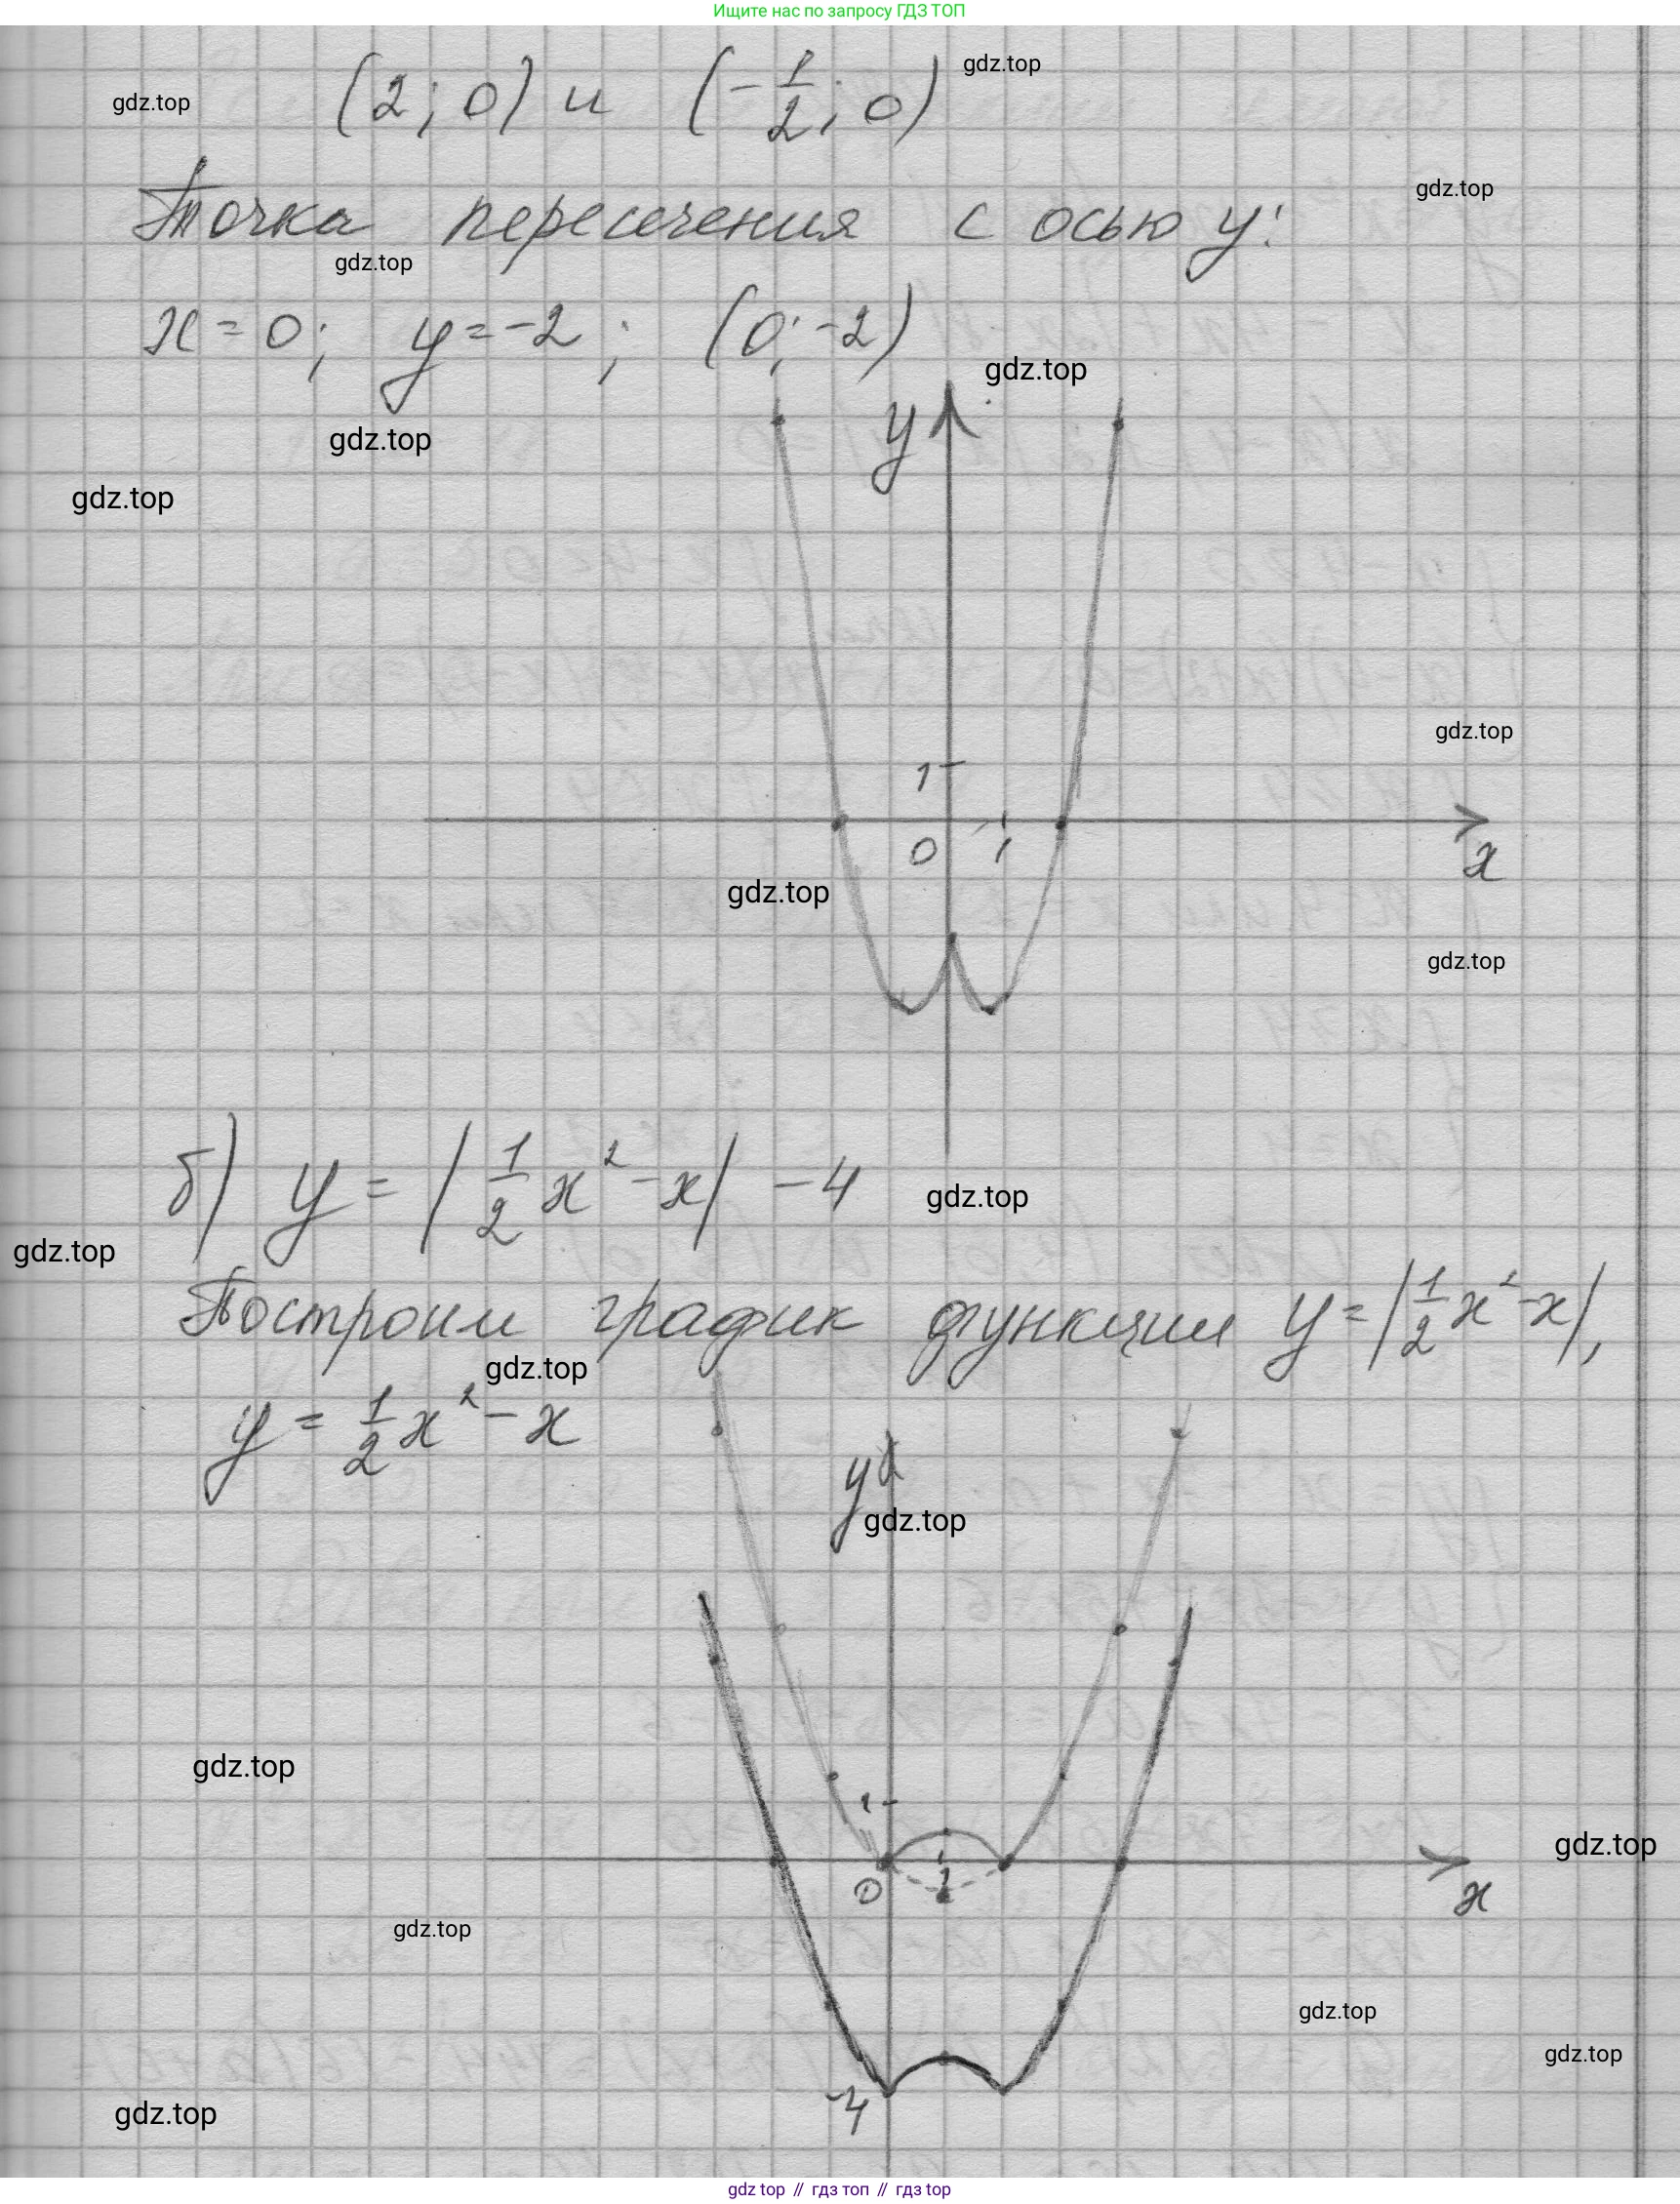 Ищите нас по запросу ГДЗ ТОП
(2; 0) и (-1/2; 0)
gdz.top
gdz.top
Точка пересечения с осью y:
gdz.top
gdz.top
x = 0; y = -2; (0; -2)
gdz.top
y
gdz.top
gdz.top
gdz.top
1
0 1
x
gdz.top
gdz.top
б) y = |1/2 x² - x| - 4
gdz.top
gdz.top
Построим график функции y = |1/2 x² - x|,
gdz.top
y = 1/2 x² - x
y
gdz.top
gdz.top
1
gdz.top
0 1
x
gdz.top
gdz.top
gdz.top
-4
gdz.top
gdz top // гдз топ // гдз top